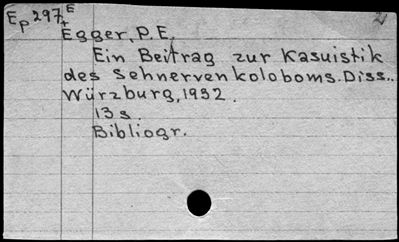 Ep 297 E
Egger, P.E.
Ein Beitrag zur Kasuistik
des Sehnervenkoloboms. Diss..
Würzburg, 1932.
13 s.
Bibliogr.